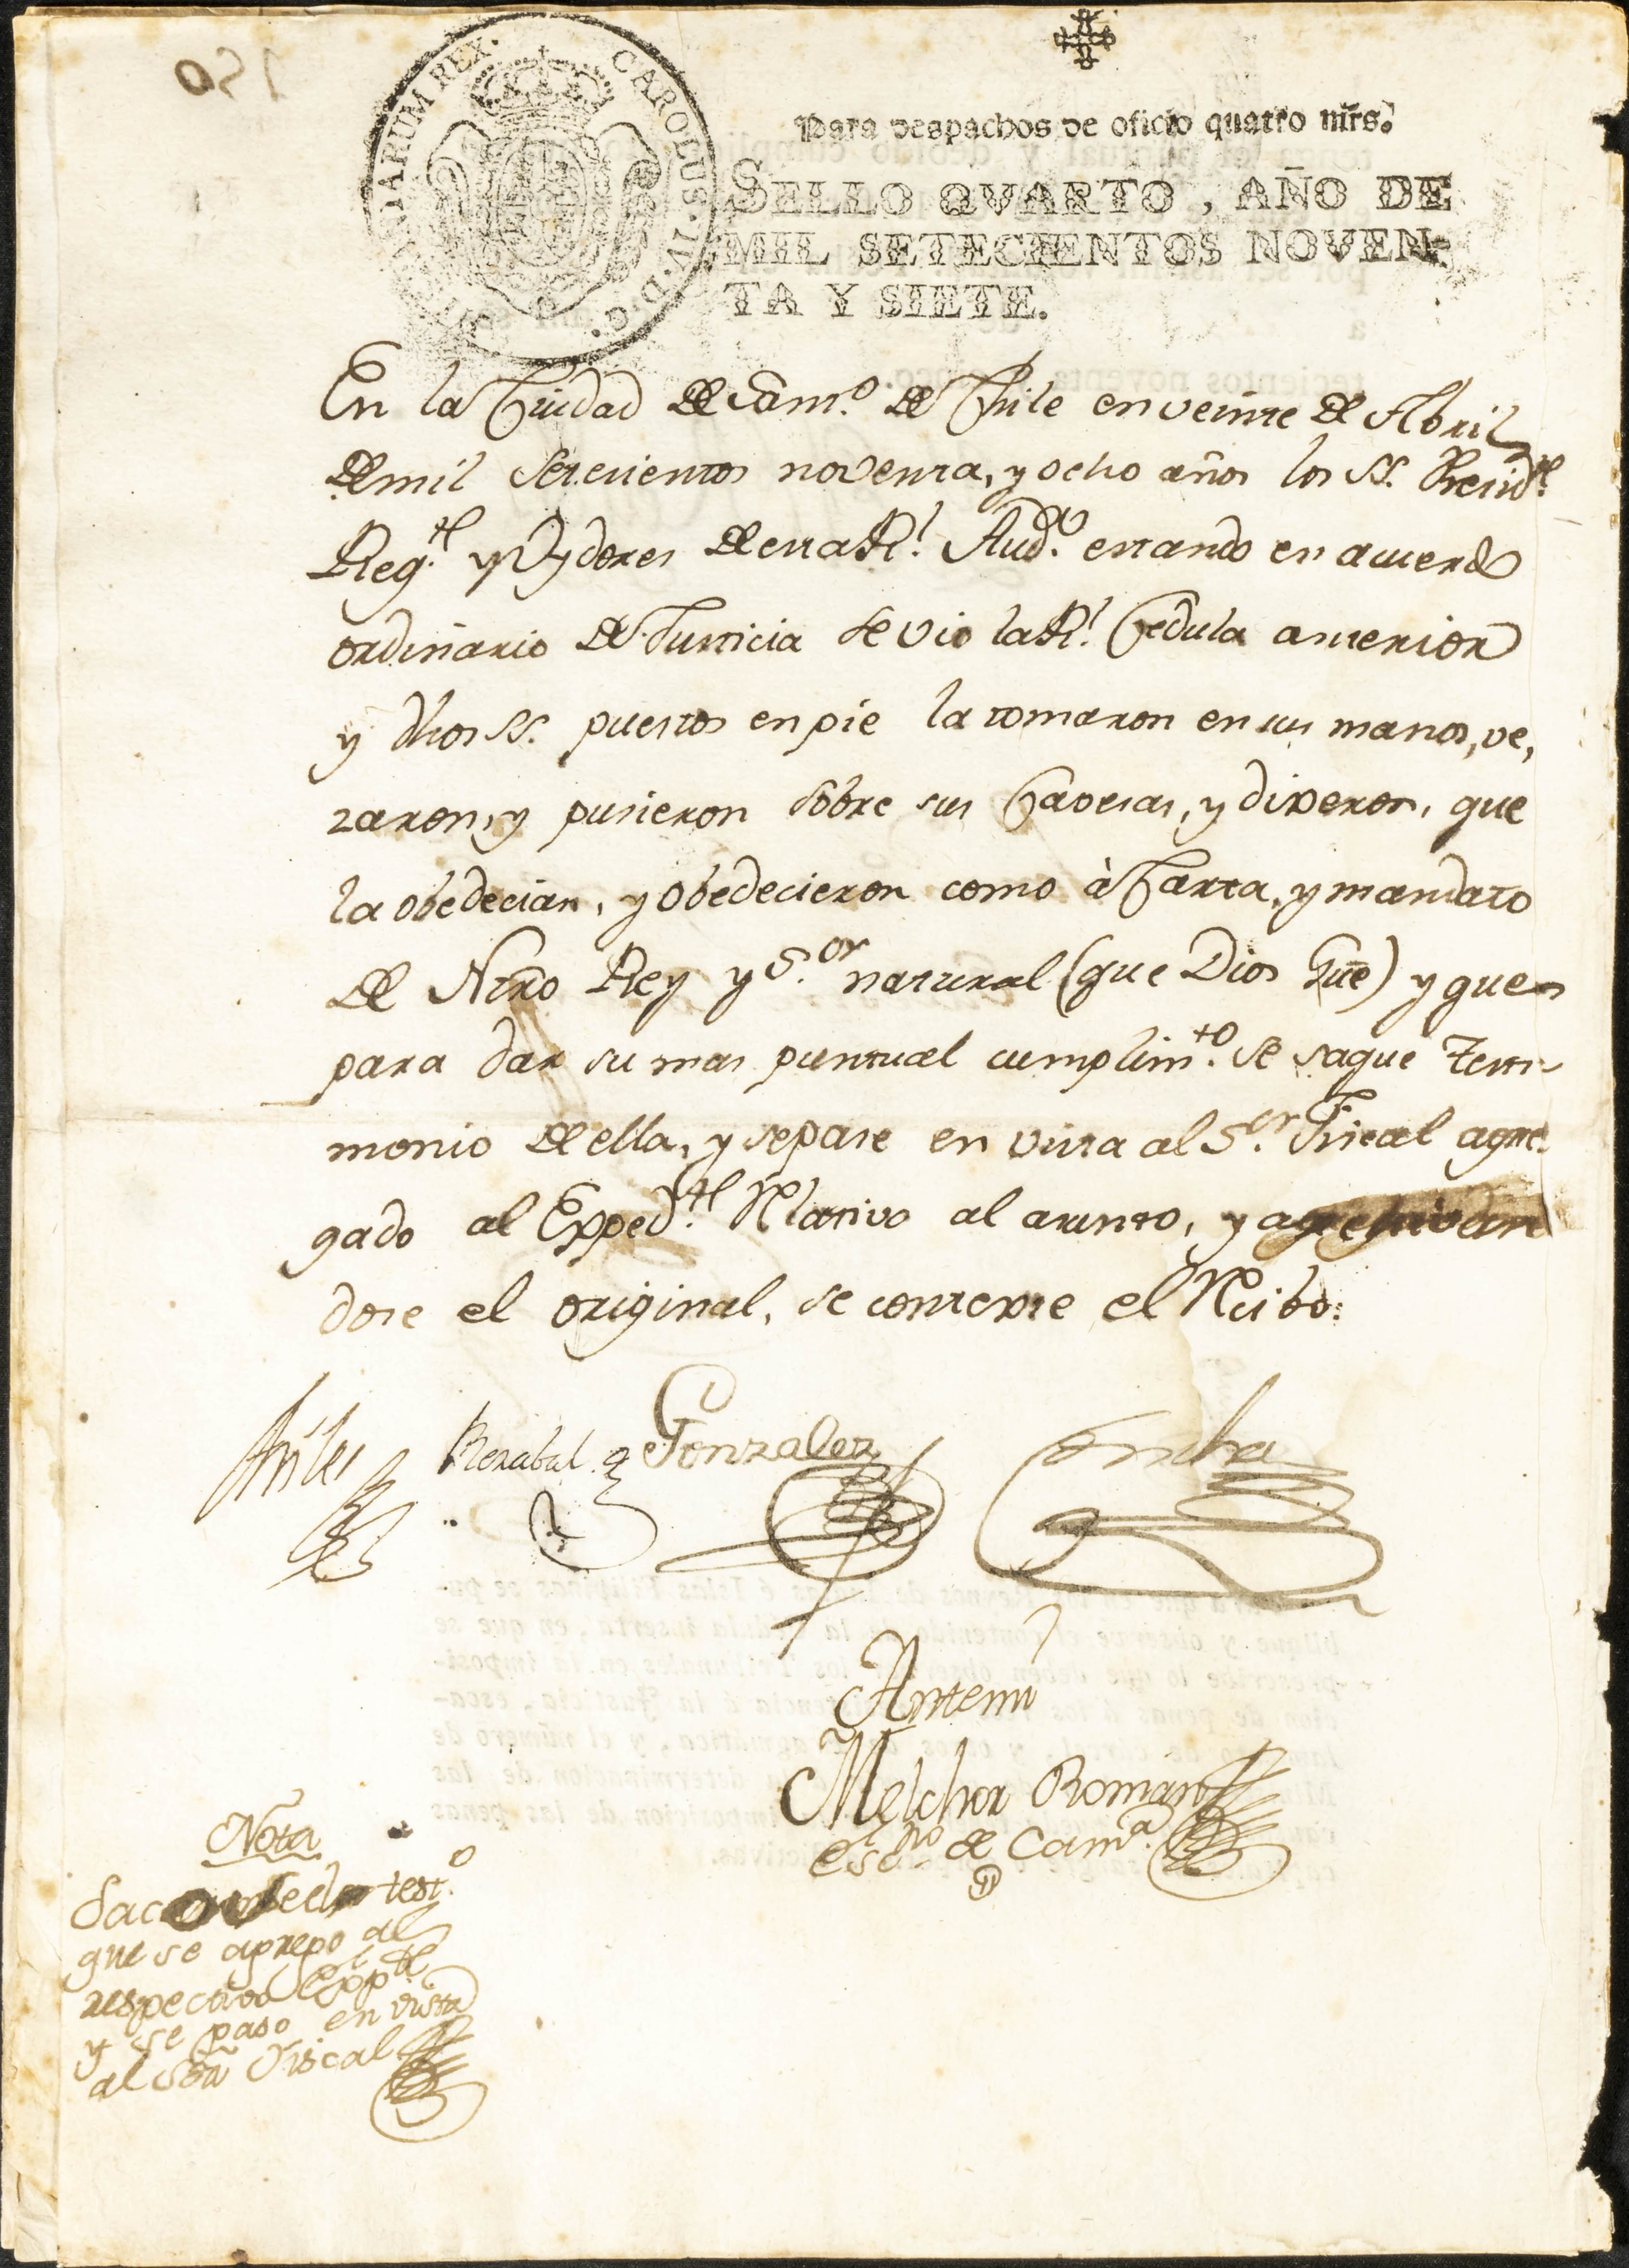 Para despachos de oficio quatro mrs.
SELLO QVARTO, AÑO DE
MIL SETECIENTOS NOVEN-
TA Y SIETE.
CAROLUS. IV. D. G. ARUM REX.
En la Ciudad de Sant.º de Chile en veinte de Abril
de mil setecientos noventa, y ocho años los SS. Presid.te
Reg.te y Oydores de esta Rl. Aud.ª estando en acuerdo
ordinario de Justicia se vio la Rl. Cedula anterior
y dhos SS. puestos en pie la tomaron en sus manos, ve,
zaron, y pusieron sobre sus Cavesas, y dixeron, que
la obedecian, y obedecieron como à Carta, y mandato
de Ntro Rey y S.or natural (que Dios Gue) y que
para dar su mas puntual cumplim.to se saque testi-
monio de ella, y se pase en vista al S.or Fiscal agre-
gado al Exped.te Relativo al asunto, y archivan
dose el original, se conteste el Recibo:
Aviles Rezabal Gonzalez Concha
Antemi
Melchor Roman
Es.no de Cam.a
Nota
test.º
que se agrego al
respectivo Expte.
y se paso en vista
al Sor Fiscal